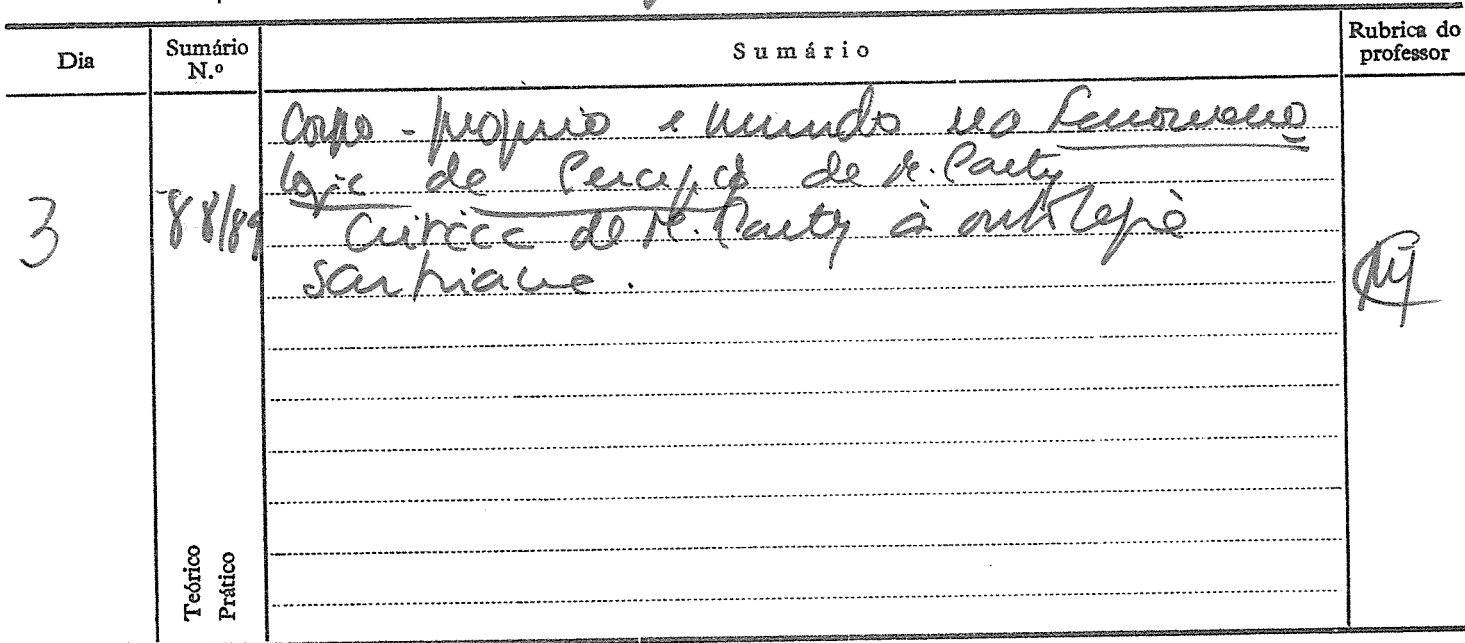 Dia
Sumário N.º
Sumário
Rubrica do professor
3
88/89
Corpo-próprio e mundo na Fenomeno
logia da Percepção de M. Ponty
Crítica de M. Ponty à ontologia
sartriana.
Teórico
Prático